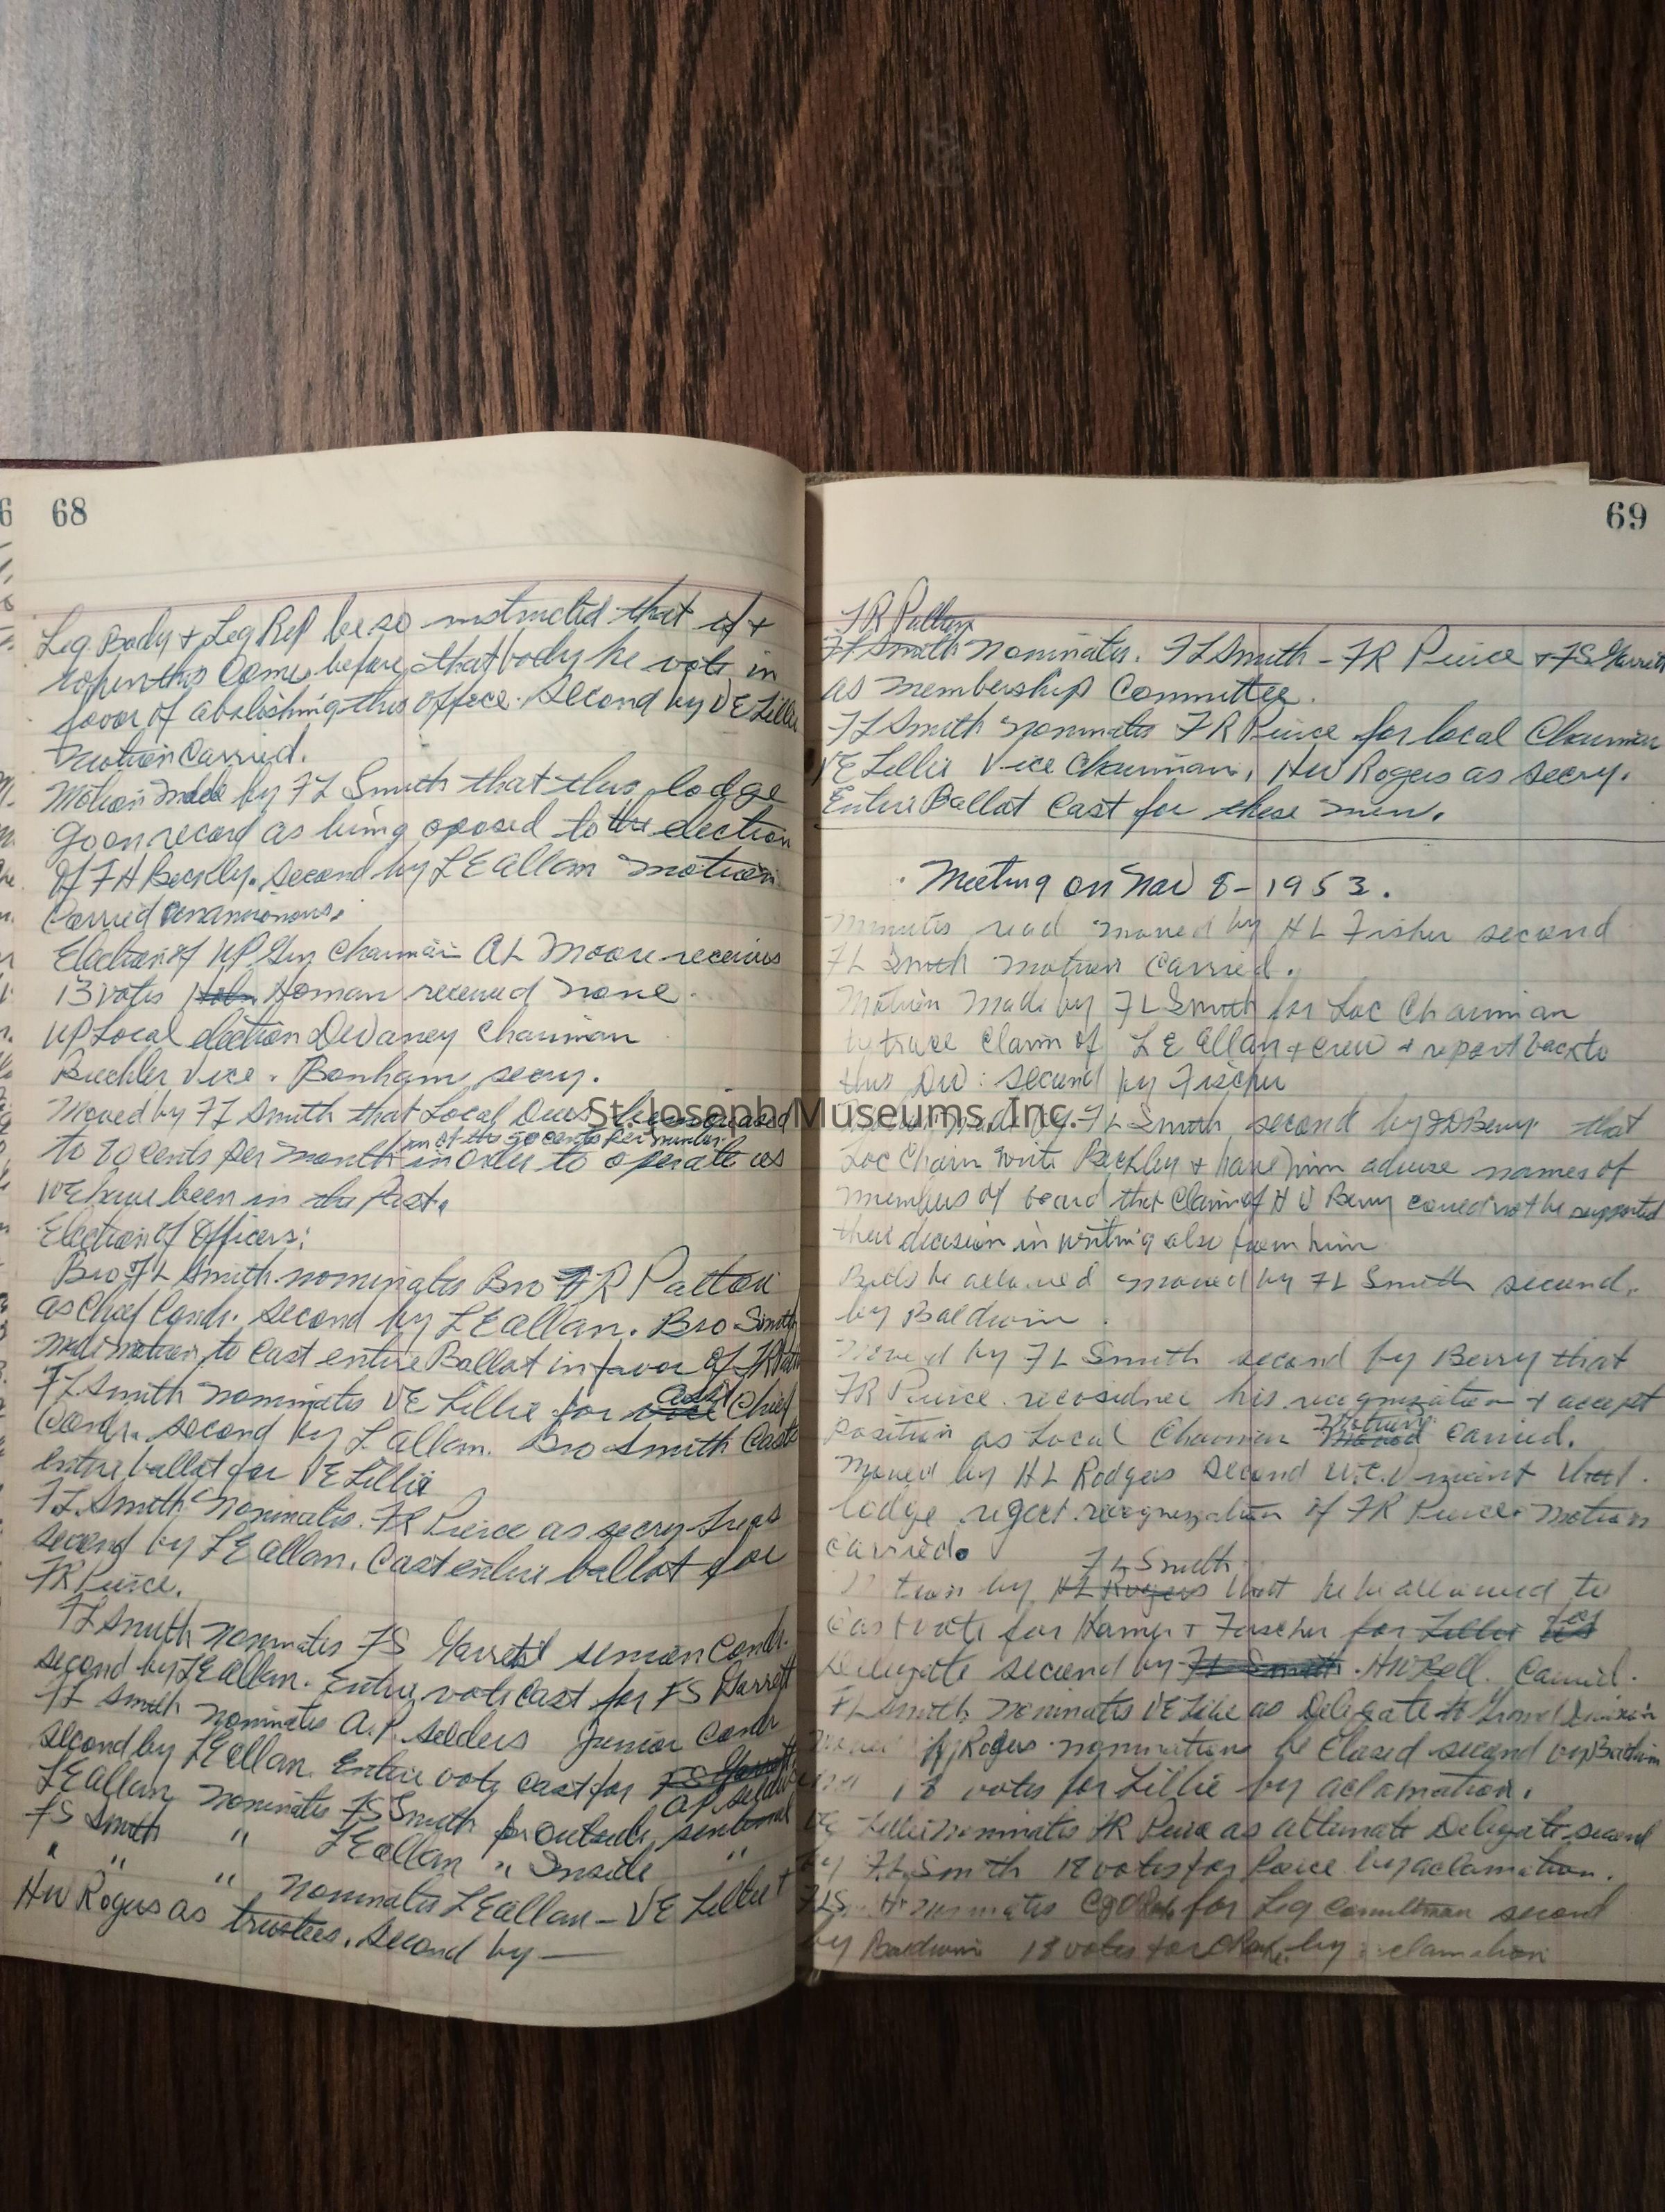 68
Leg. Body + Leg Rep be so instructed that if +
when this comes before that body he vote in
favor of abolishing this office. Second by VE Lillie
Motion Carried.
Motion made by FL Smith that this lodge
go on record as being oposed to the election
of FH Beckly. second by LE Allan motion
Carried
Election of UP Gen Chairman AL Moore receives
13 votes Homan received none.
UP Local election DeVaney Chairman
Buchler Vice. Bonham secry.
Moved by FL Smith that Local Dues be
to 80 cents per month in order to operate as
we have been in the past.
Election of Officers:
Bro FL Smith nominates Bro FR Patton
as Chief Condr. second by LE Allan. Bro Smith
made motion to Cast entire Ballot in favor of FR
FL Smith nominates VE Lillie for Asst Chief
Condr. second by L Allan. Bro Smith Casts
entire ballot for VE Lillie
FL Smith nominates FR Pierce as secry treas
second by LE Allan. Cast entire ballot for
FR Pierce.
FL Smith nominates FS Garrett senior Condr.
second by LE Allan. Entire vote cast for FS Garrett
FL Smith nominates A.P. Selders Junior Condr
second by LE Allan. Entire vote cast for
AP
LE Allan nominates FS Smith for outside sentinal
FS Smith " LE Allan " Inside "
" " " nominates LE Allan - VE Lillie +
HW Rogers as trustees. Second by —
69
FR Patton
FL Smith nominates. FL Smith - FR Pierce + FS Garrett
as membership Committee.
FL Smith nominates FR Pierce for local Chairman
VE Lillie Vice Chairman, HW Rogers as secry.
Entire Ballot Cast for these men.
Meeting on Nov 8-1953.
Minutes read moved by HL Fisher second
FL Smith motion Carried.
Motion Made by FL Smith for Loc Chairman
to trace Claim of LE Allan + crew + report back to
this Div: second by Fischer
St. Joseph Museums, Inc.
by FL Smith second by Berry that
Loc Chairm write Beckley + have him advise names of
members of board that Claim of H Berry could not be supported
their decision in writing also from him
Bills be allowed moved by FL Smith second.
by Baldwin.
Moved by FL Smith second by Berry that
FR Pierce his + accept
position as Local Chairman Motion Carried.
Moved by HL Rodgers second that
lodge reject of FR Pierce. Motion
carried.
FL Smith
Motion by HL Rogers that he be allowed to
Cast vote for + Fischer for Lillie
Delegate second by FL Smith. HW Bell. Carried.
FL Smith nominates VE Lillie as Delegate to Grand Division
Moved by Rogers nominations be closed second by Baldwin
18 votes for Lillie by aclamation.
VE Lillie nominates FR Pierce as alternate Delegate second
by FL Smith 18 votes for Pierce by aclamation.
nominates for Leg Committman second
by Baldwin 18 votes for by aclamation